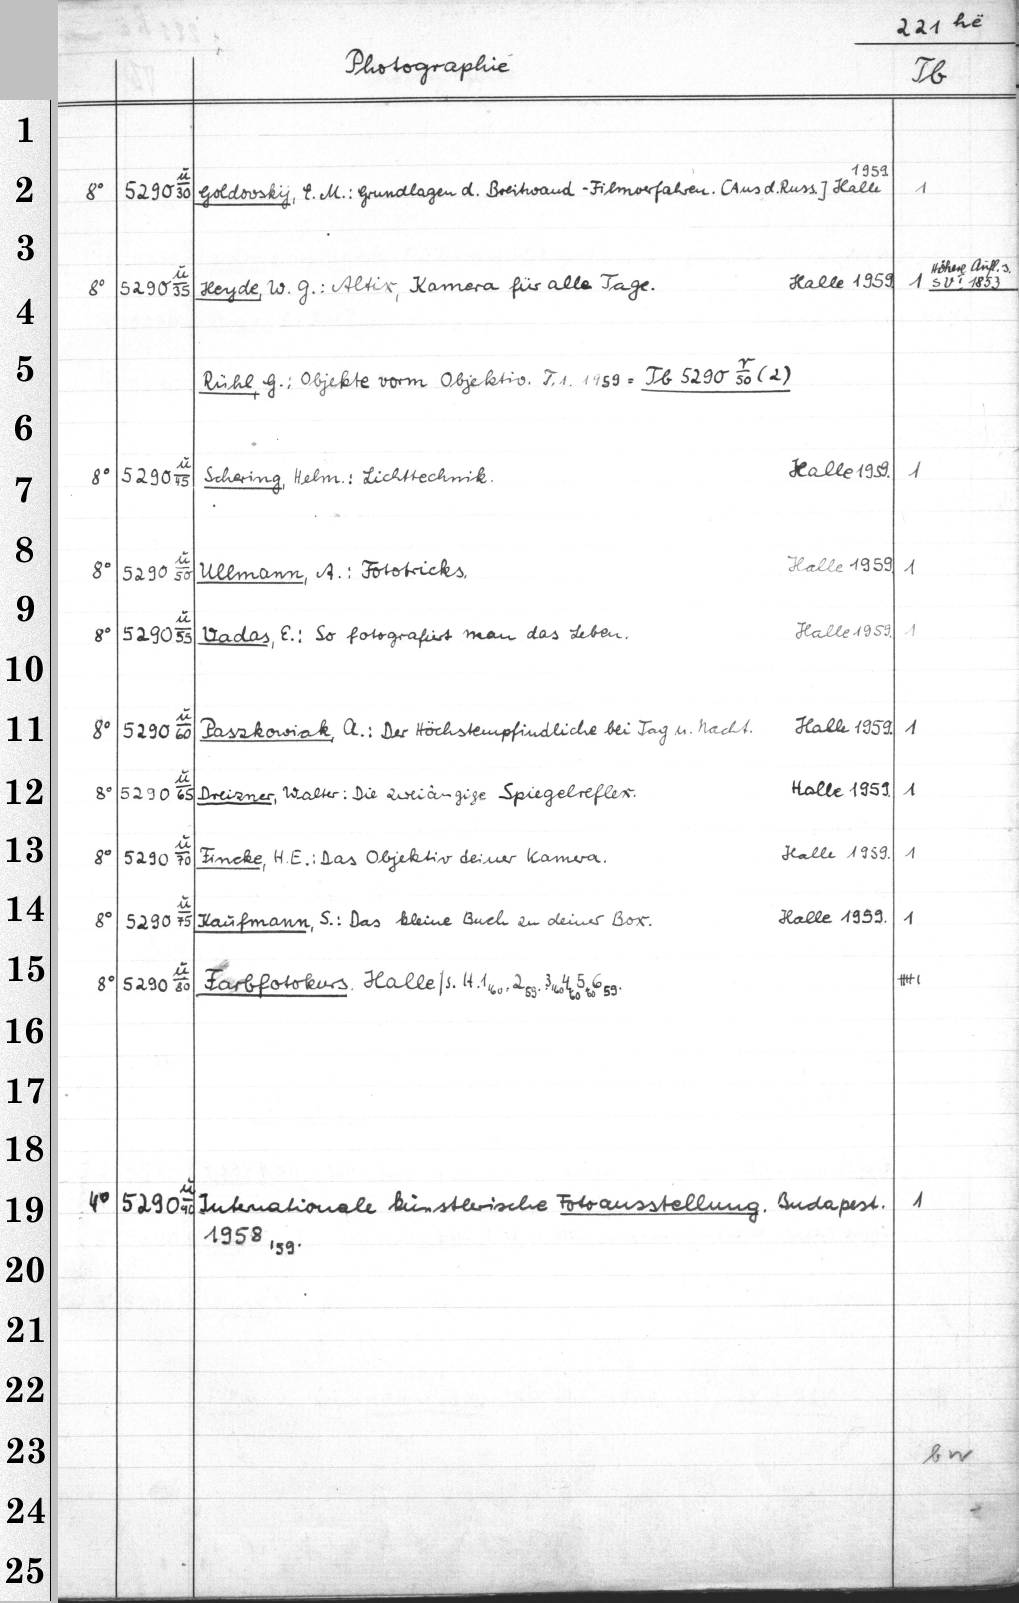 221 hë
Photographie
Tb
1
2 8° 5290 ü/30 Goldovskij, E. M.: Grundlagen d. Breitwand-Filmverfahren. [Aus d. Russ.] Halle 1959 1
3
8° 5290 ü/35 Heyde, W. G.: Altix, Kamera für alle Tage. Halle 1959 1 Höhere Aufl. s. SV: 1853
4
5 Rühl, G.: Objekte vorm Objektiv. T.1. 1959 = Tb 5290 r/50 (2)
6
7 8° 5290 ü/45 Schering, Helm.: Lichttechnik. Halle 1959. 1
8 8° 5290 ü/50 Ullmann, A.: Fototricks. Halle 1959 1
9
8° 5290 ü/55 Vadas, E.: So fotografiert man das Leben. Halle 1959. 1
10
11 8° 5290 ü/60 Paszkowiak, A.: Der Höchstempfindliche bei Tag u. Nacht. Halle 1959. 1
12 8° 5290 ü/65 Dreizner, Walter: Die zweiäugige Spiegelreflex. Halle 1959. 1
13 8° 5290 ü/70 Fincke, H. E.: Das Objektiv deiner Kamera. Halle 1959. 1
14 8° 5290 ü/75 Kaufmann, S.: Das kleine Buch zu deiner Box. Halle 1959. 1
15 8° 5290 ü/80 Farbfotokurs. Halle/S. H. 1,60. 2,59. 3,60 4,60 5,60 6,59.
16
17
18
19 4° 5290 ü/90 Internationale künstlerische Fotoausstellung. Budapest. 1
1958,59.
20
21
22
23 bw
24
25